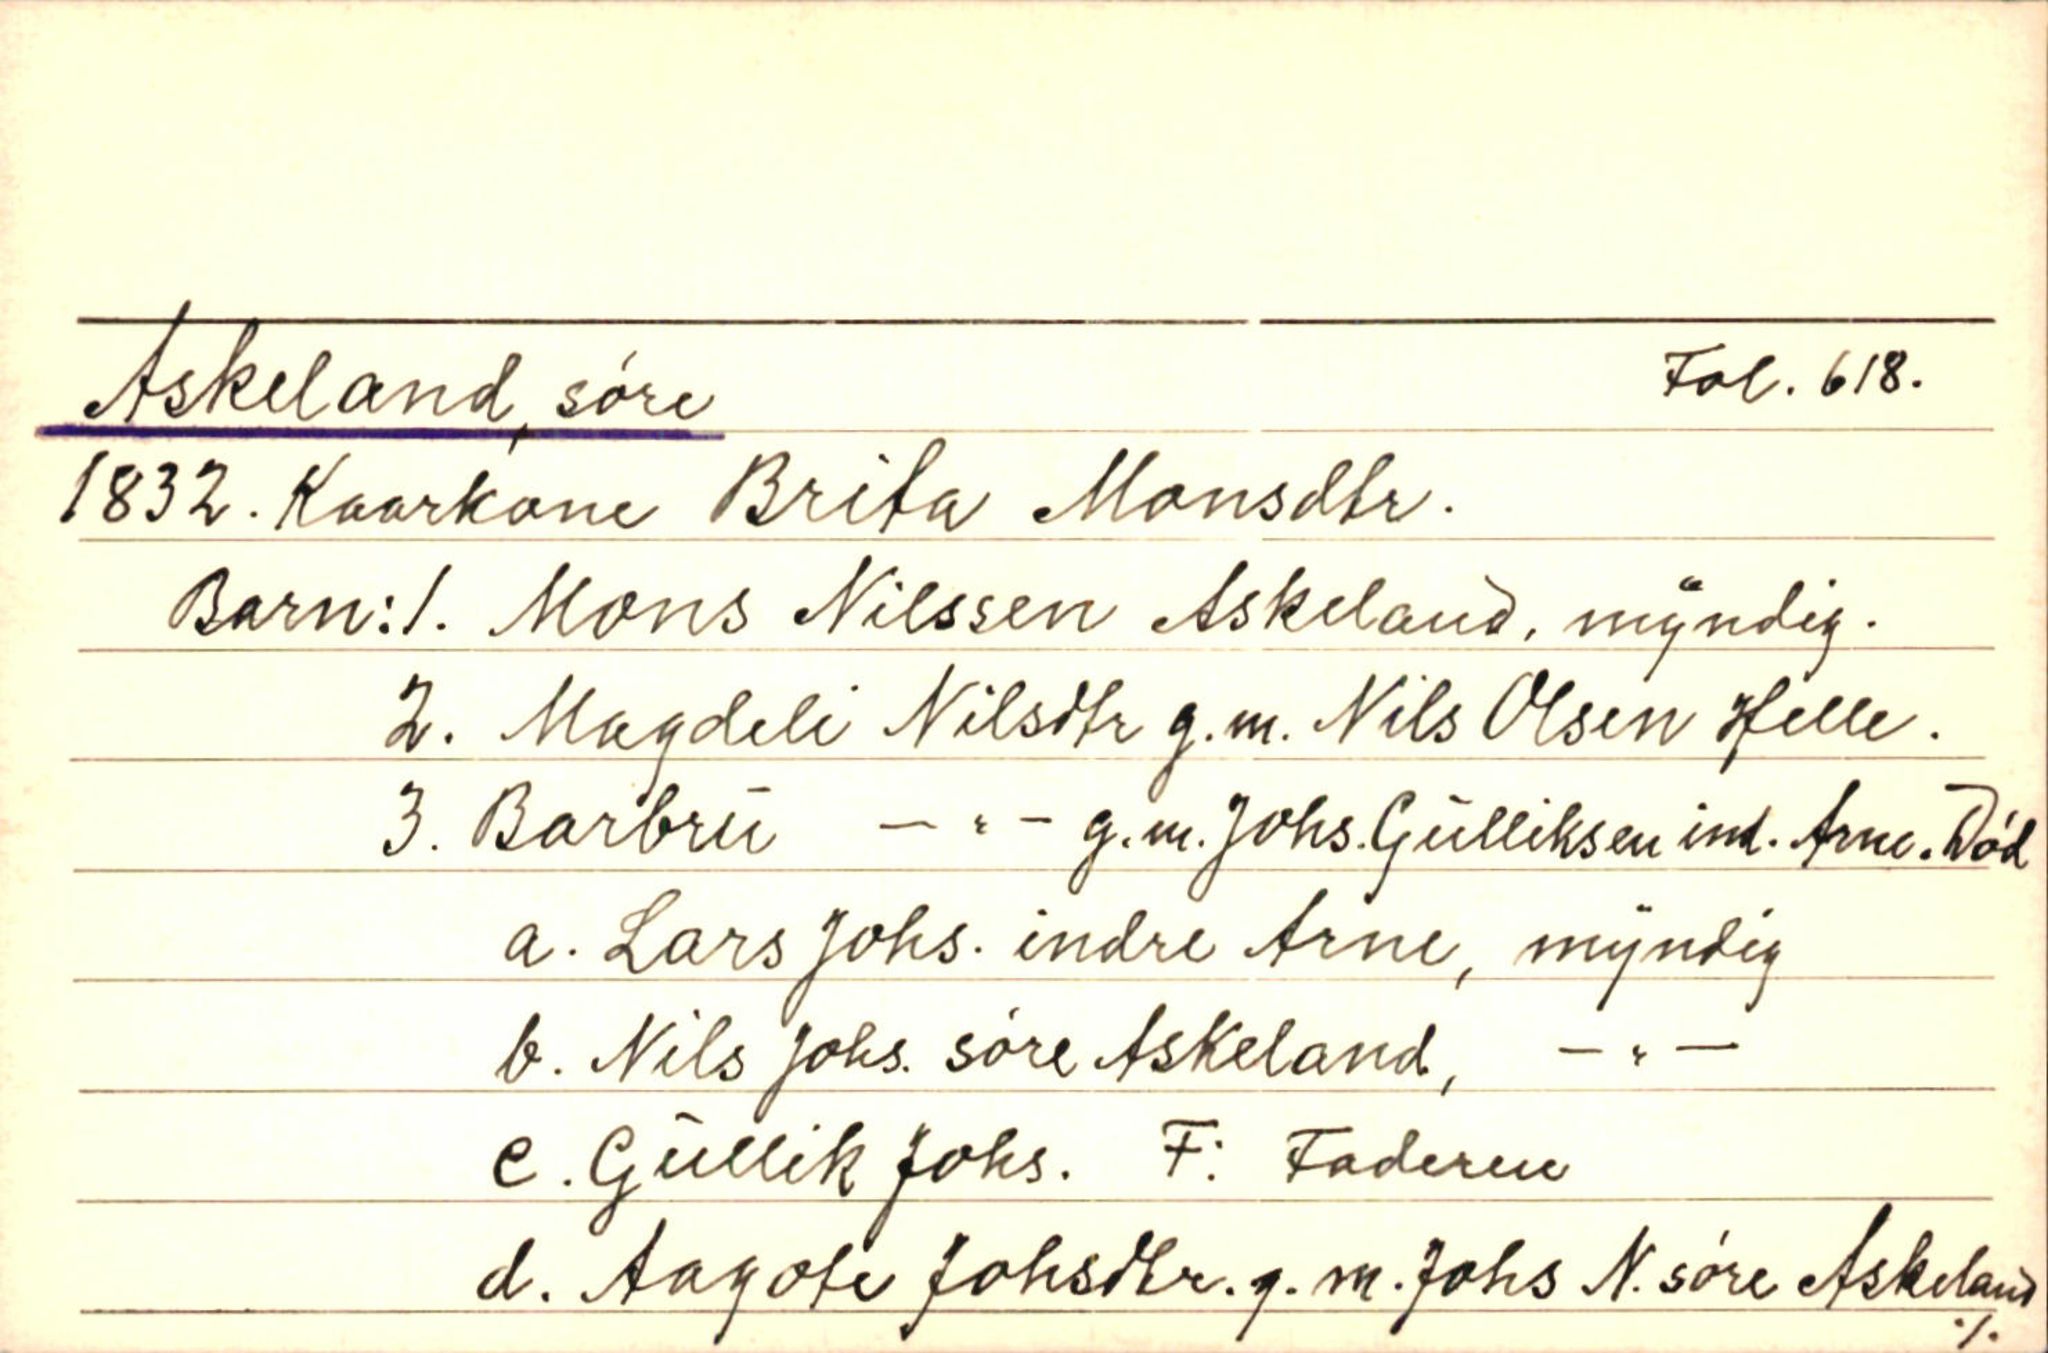 Askeland, söre Fol. 618.
1832. Kaarkone Brita Monsdtr.
Barn: 1. Mons Nilssen Askeland, myndig.
2. Magdeli Nilsdtr g.m. Nils Olsen Helle.
3. Barbru —"— g.m. Johs. Gulliksen ind. Arne. Död
a. Lars Johs. indre Arne, myndig
b. Nils Johs. söre Askeland, —"—
c. Gullik Johs. F: Faderen
d. Aagote Johsdtr. g.m. Johs N. söre Askeland
./.